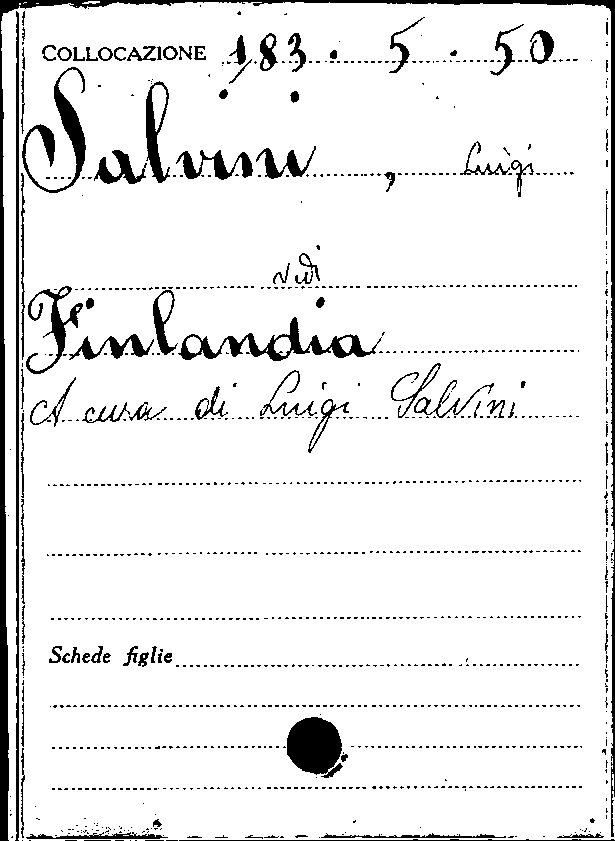 COLLOCAZIONE 183. 5. 50
Salvini, Luigi
vedi
Finlandia
A cura di Luigi Salvini
Schede figlie